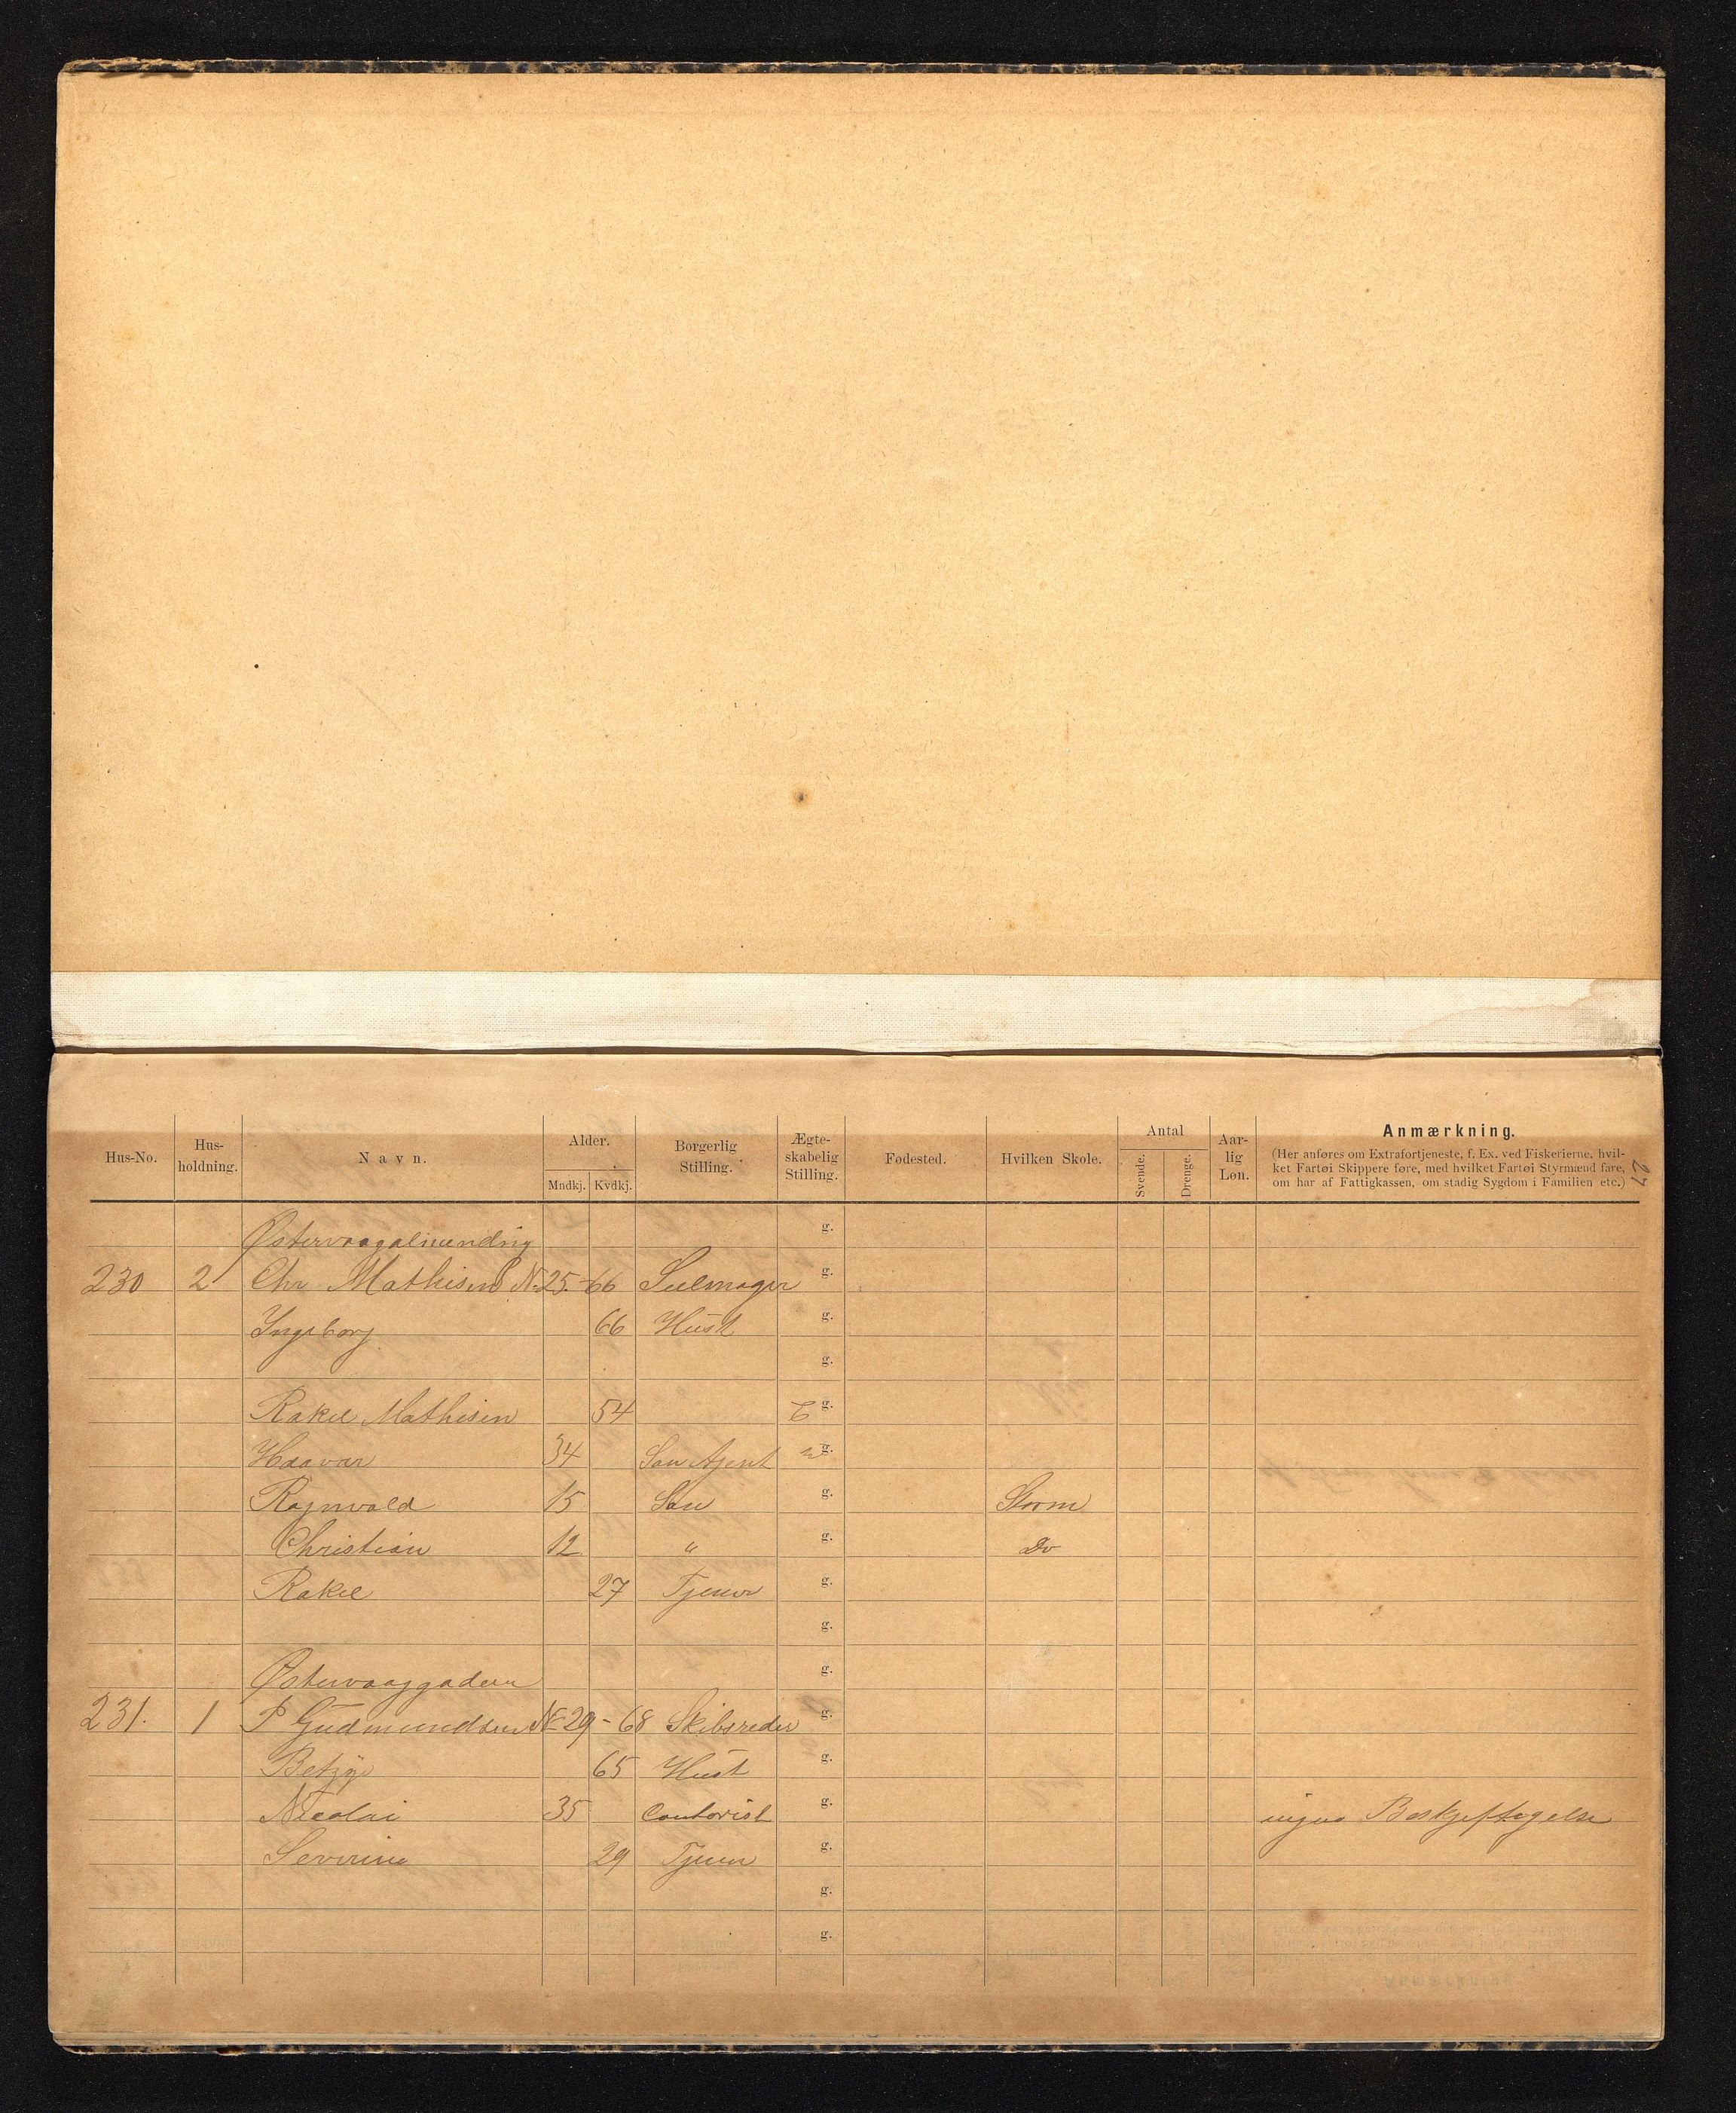 27
Hus-No. Hus-holdning. Navn. Alder. Mndkj. Kvdkj. Borgerlig Stilling. Ægte-skabelig Stilling. Fødested. Hvilken Skole. Antal Svende. Drenge. Aar-lig Løn. Anmærkning.
(Her anføres om Extrafortjeneste, f. Ex. ved Fiskerierne, hvil-
ket Fartøi Skippere føre, med hvilket Fartøi Styrmænd fare,
om har af Fattigkassen, om stadig Sygdom i Familien etc.)
Østervaagalmending g.
230 2 Chr Mathisen No 25. 66 Seilmager g.
Ingeborg 66 Hust g.
g.
Rakel Mathisen 54 E g.
Haavar 34 Søn Agent g.
Ragnvald 15 Søn g. Storm
Christian 12 " g. Do
Rakel 27 Tjener g.
g.
Østervaaggaden g.
231. 1 P Gudmundsen No 29 - 68 Skibsreder g.
Betzy 65 Hust g.
Nicolai 35 Contorist g. ingen Beskjeftigelse
Severine 29 Tjener g.
g.
g.